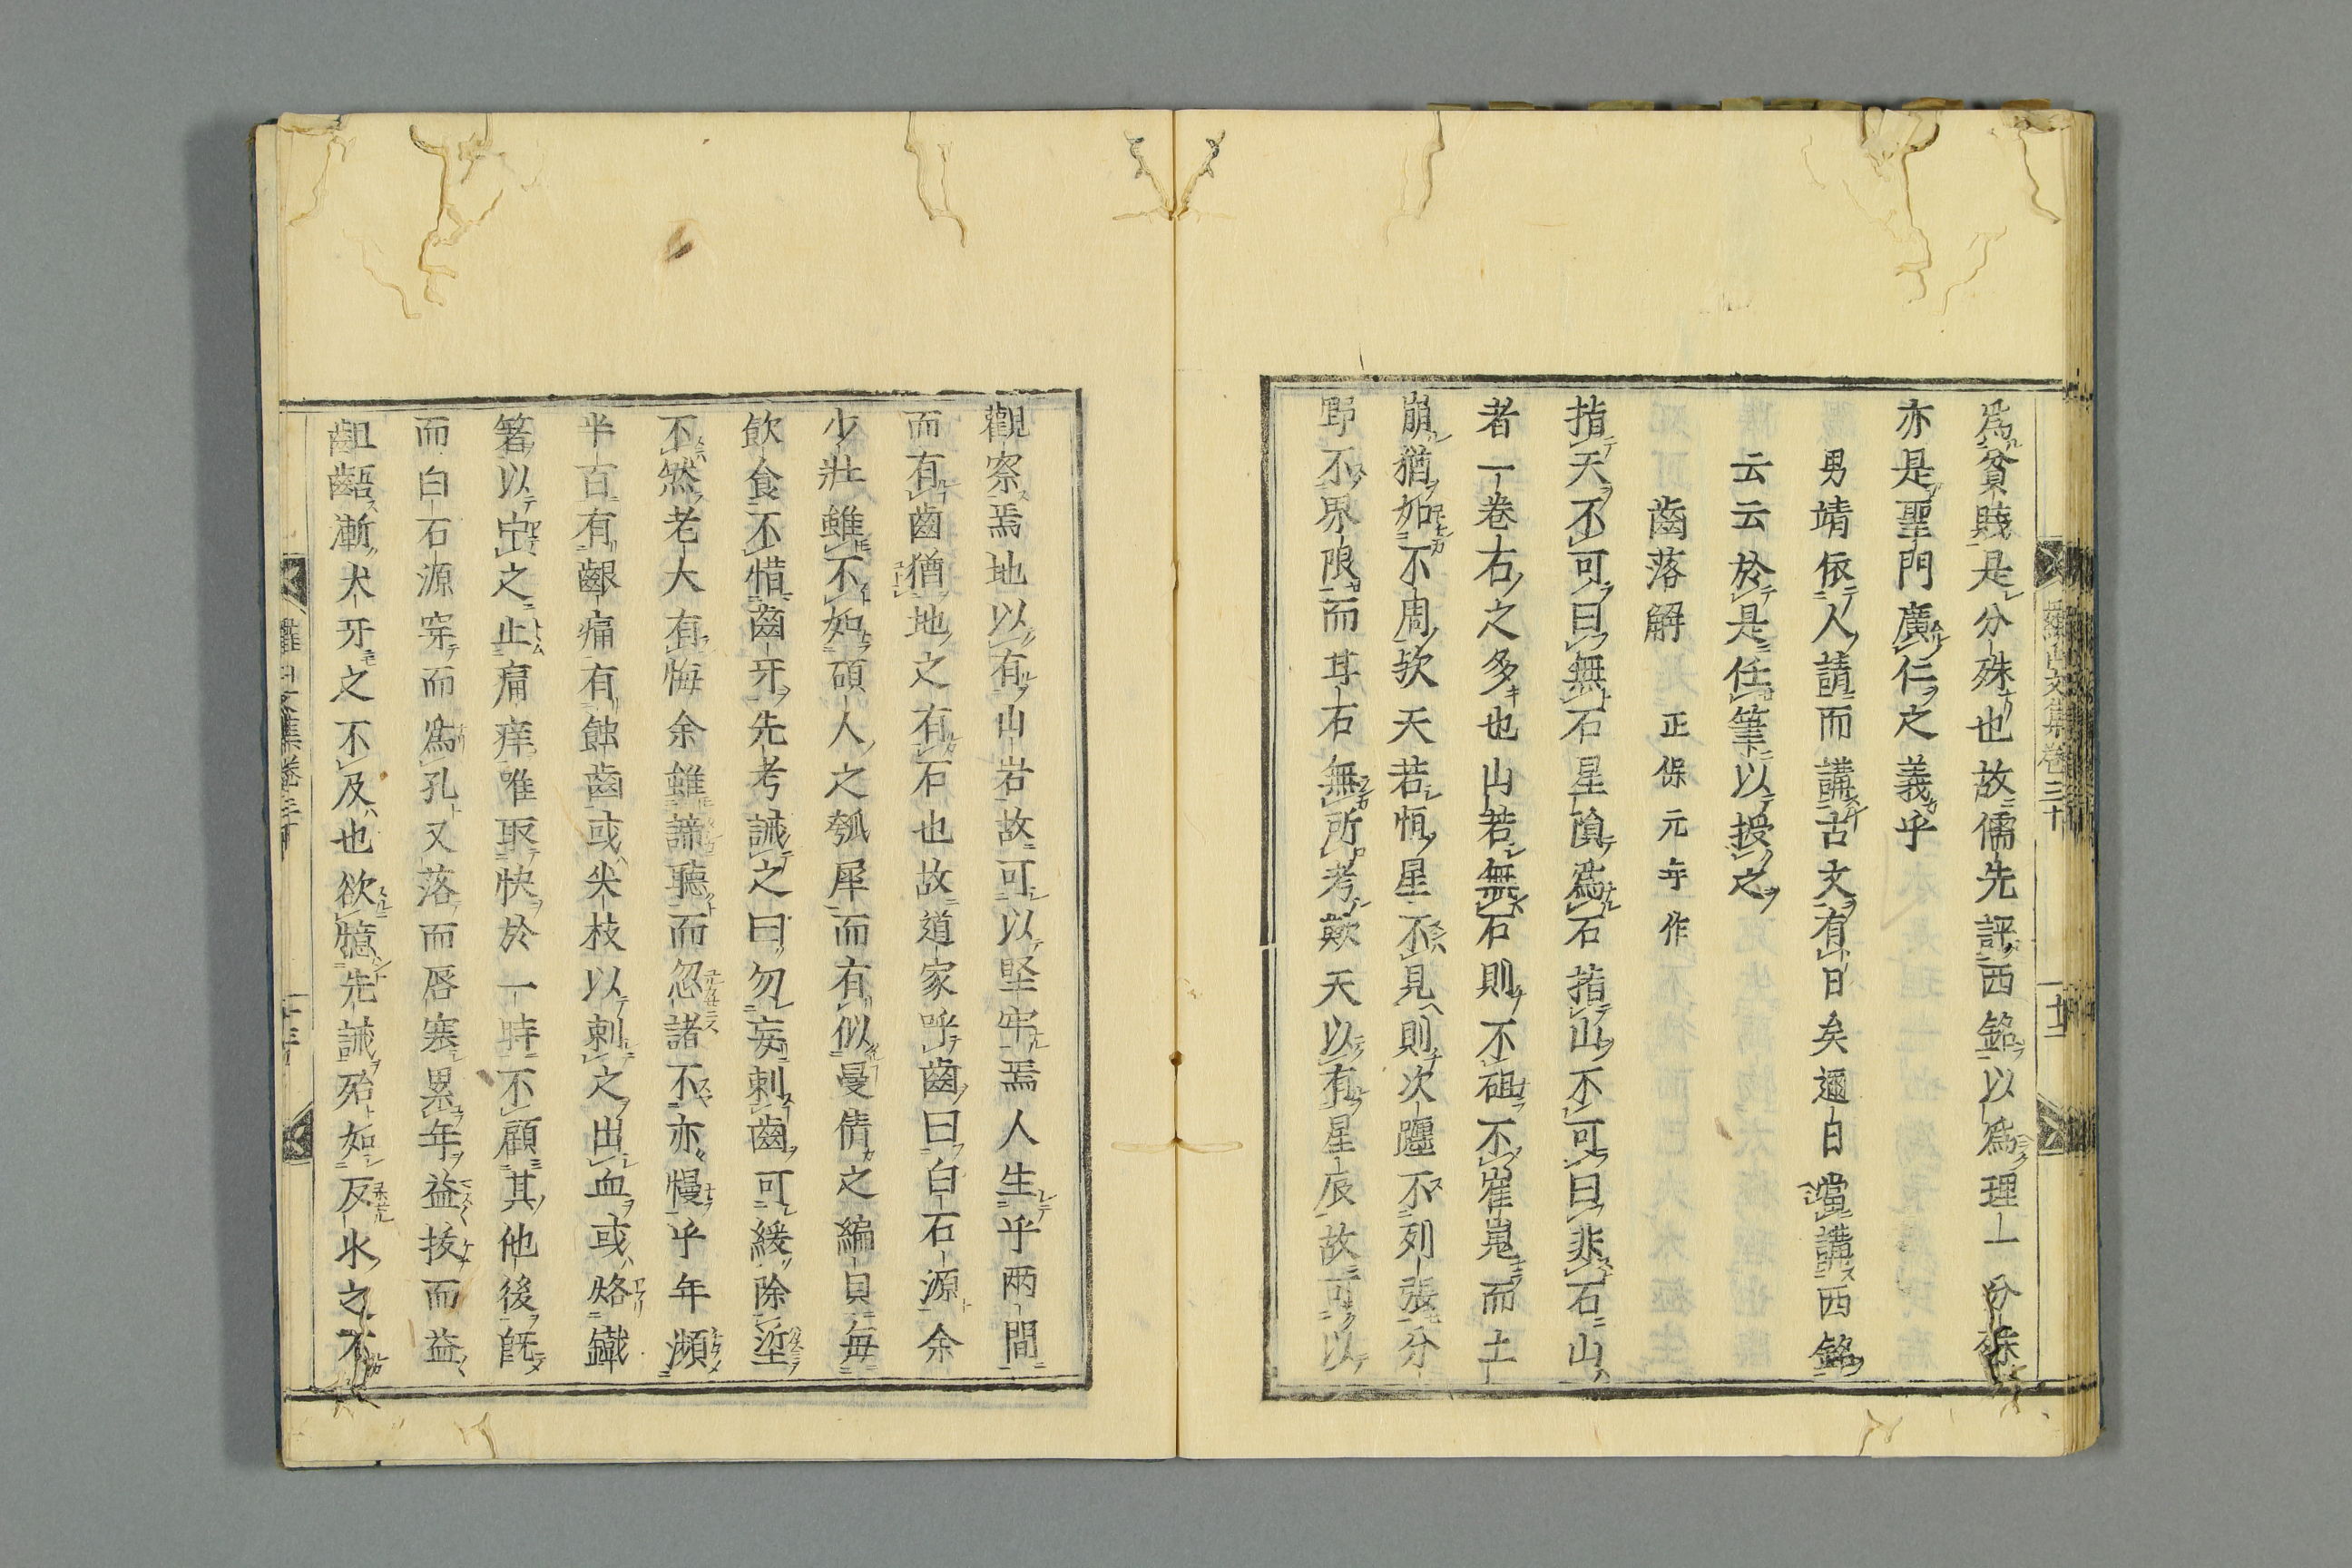 羅山文集卷三十
十二
爲貧賤是分殊也故儒先評西銘以爲理一分殊
亦是聖門廣仁之義乎
男靖依人請而講古文有日矣邇日當講西銘
云云於是任筆以授之
齒落解 正保元年作
指天不可曰無石星隕爲石指山不可曰非石山
者一卷右之多也山若無石則不砠不崔嵬而土
崩猶如不周欤天若恒星不見則次躔不列張分
野不界限而耳石無所考歟天以有星辰故可以
觀察焉地以有山岩故可以堅牢焉人生乎兩間
而有齒猶地之有石也故道家呼齒曰白石源余
少壯雖不如碩人之瓠犀而有似曼倩之編貝每
飲食不惜齒牙先考誡之曰勿妄刺齒可緩除
不然老大有悔余雖諦聽而忽諸不亦慢乎年瀕
半百有齦痛有蝕齒或尖枝以刺之出血或烙鐵
箸以之止痛痒唯取快於一時不顧其他後既
而白石源穿而爲孔又落而唇塞累年益拔而益
齟齬漸犬牙之不及也欲臆先誡殆如反水之不